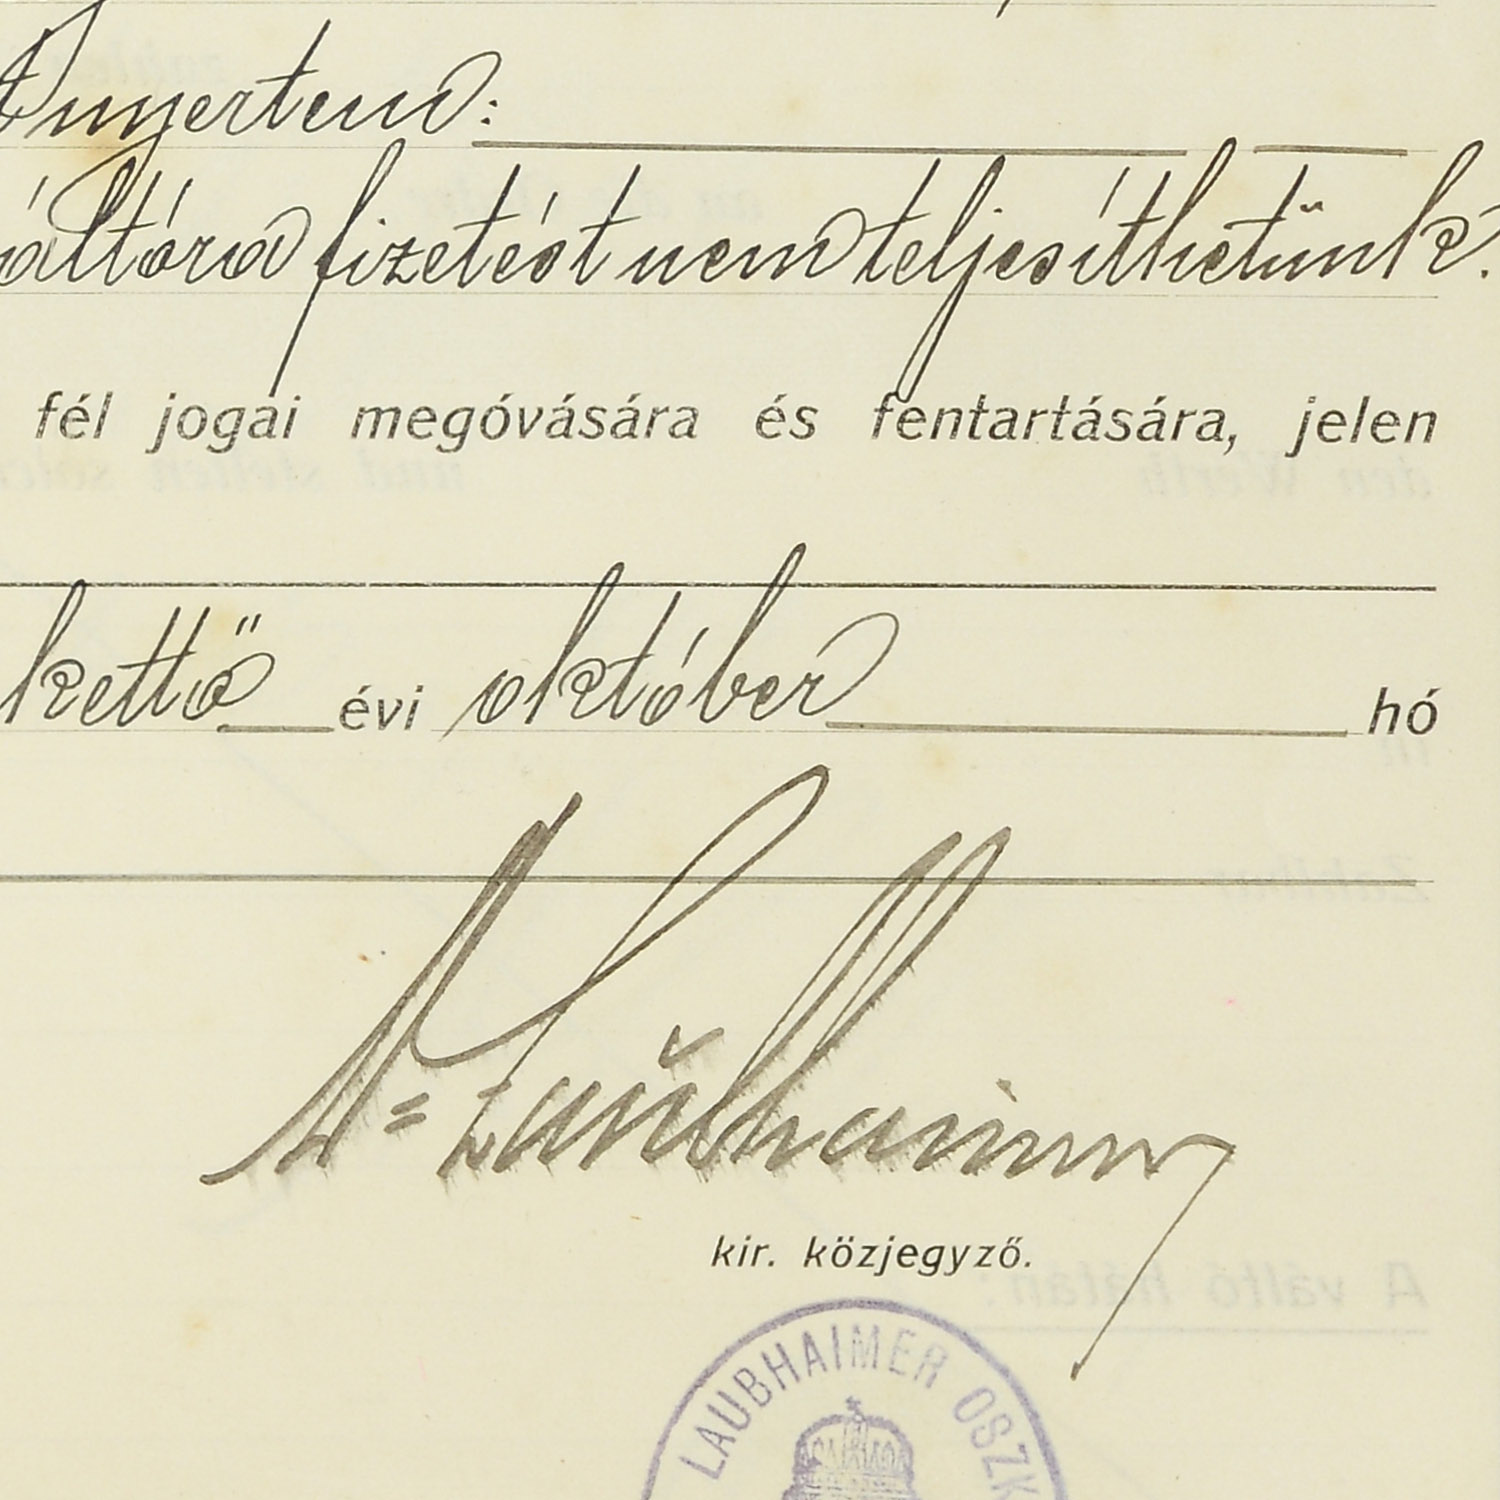 nyertem:
váltóra fizetést nem teljesíthetünk.
fél jogai megóvására és fentartására, jelen
kettő évi október hó
Dr Laubhaimer
kir. közjegyző.
LAUBHAIMER OSZK